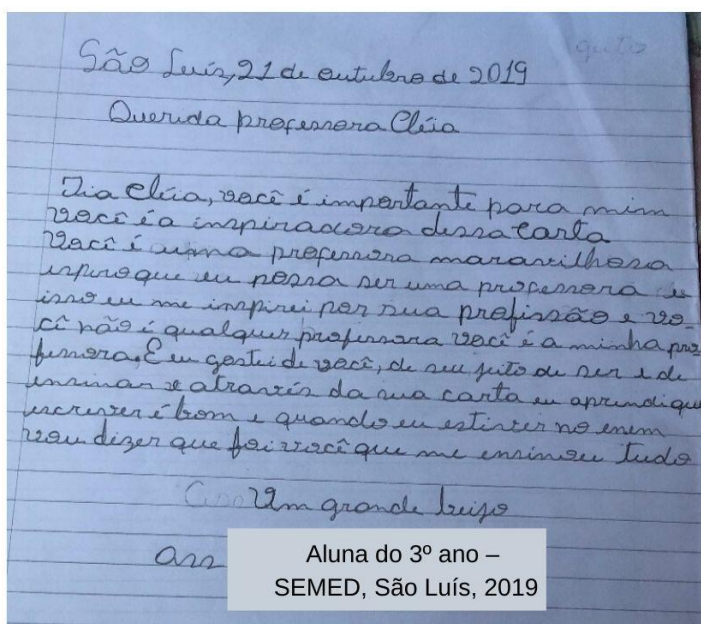 quito
São Luís, 21 de outubro de 2019
Querida professora Cléia
Tia Cléia, você é importante para mim
você é a inspiradora dessa carta
Você é uma professora maravilhosa
espero que eu possa ser uma professora
isso eu me inspirei por sua profissão e vo-
cê não é qualquer professora você é a minha pro
fessora. E eu gostei de você, de seu jeito de ser e de
ensinar e através da sua carta eu aprendi que
escrever é bom e quando eu estiver no enem
vou dizer que foi você que me ensinou tudo
Um grande beijo
Ass
Aluna do 3º ano –
SEMED, São Luís, 2019